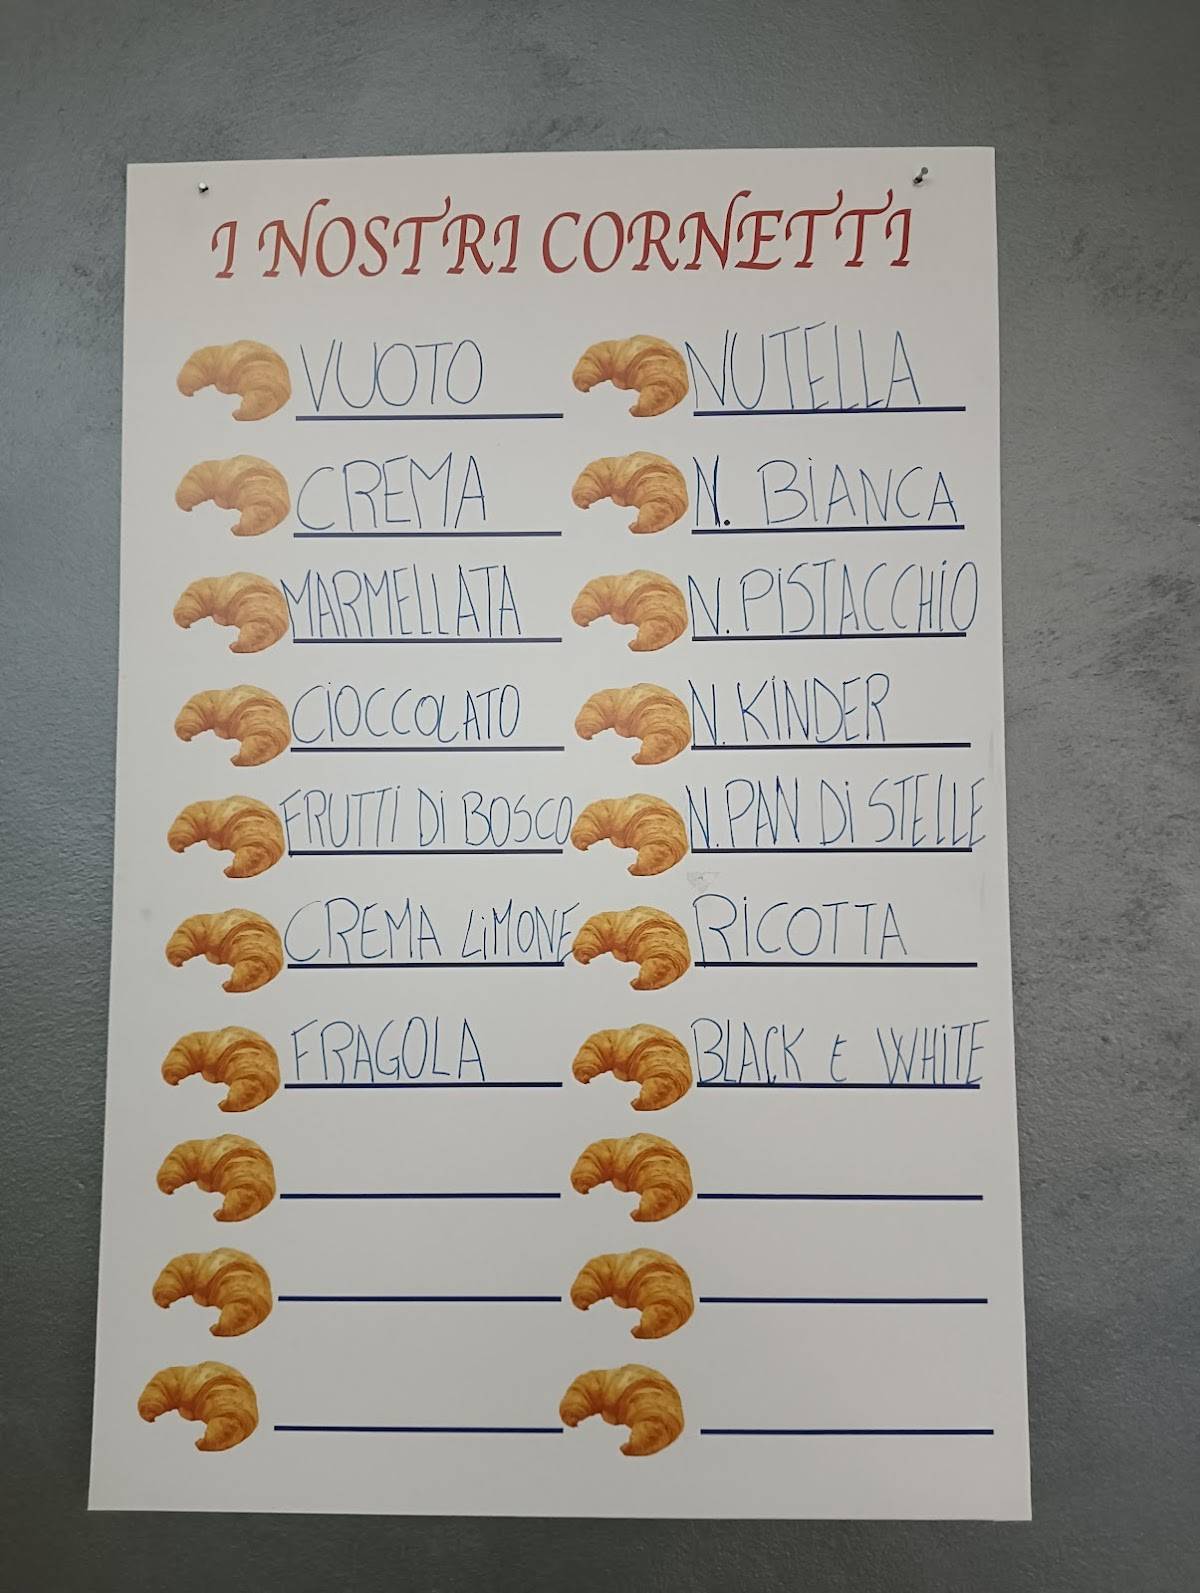 I NOSTRI CORNETTI
VUOTO
CREMA
MARMELLATA
CIOCCOLATO
FRUTTI DI BOSCO
CREMA LIMONE
FRAGOLA
NUTELLA
N. BIANCA
N. PISTACCHIO
N. KINDER
N. PAN DI STELLE
RICOTTA
BLACK E WHITE